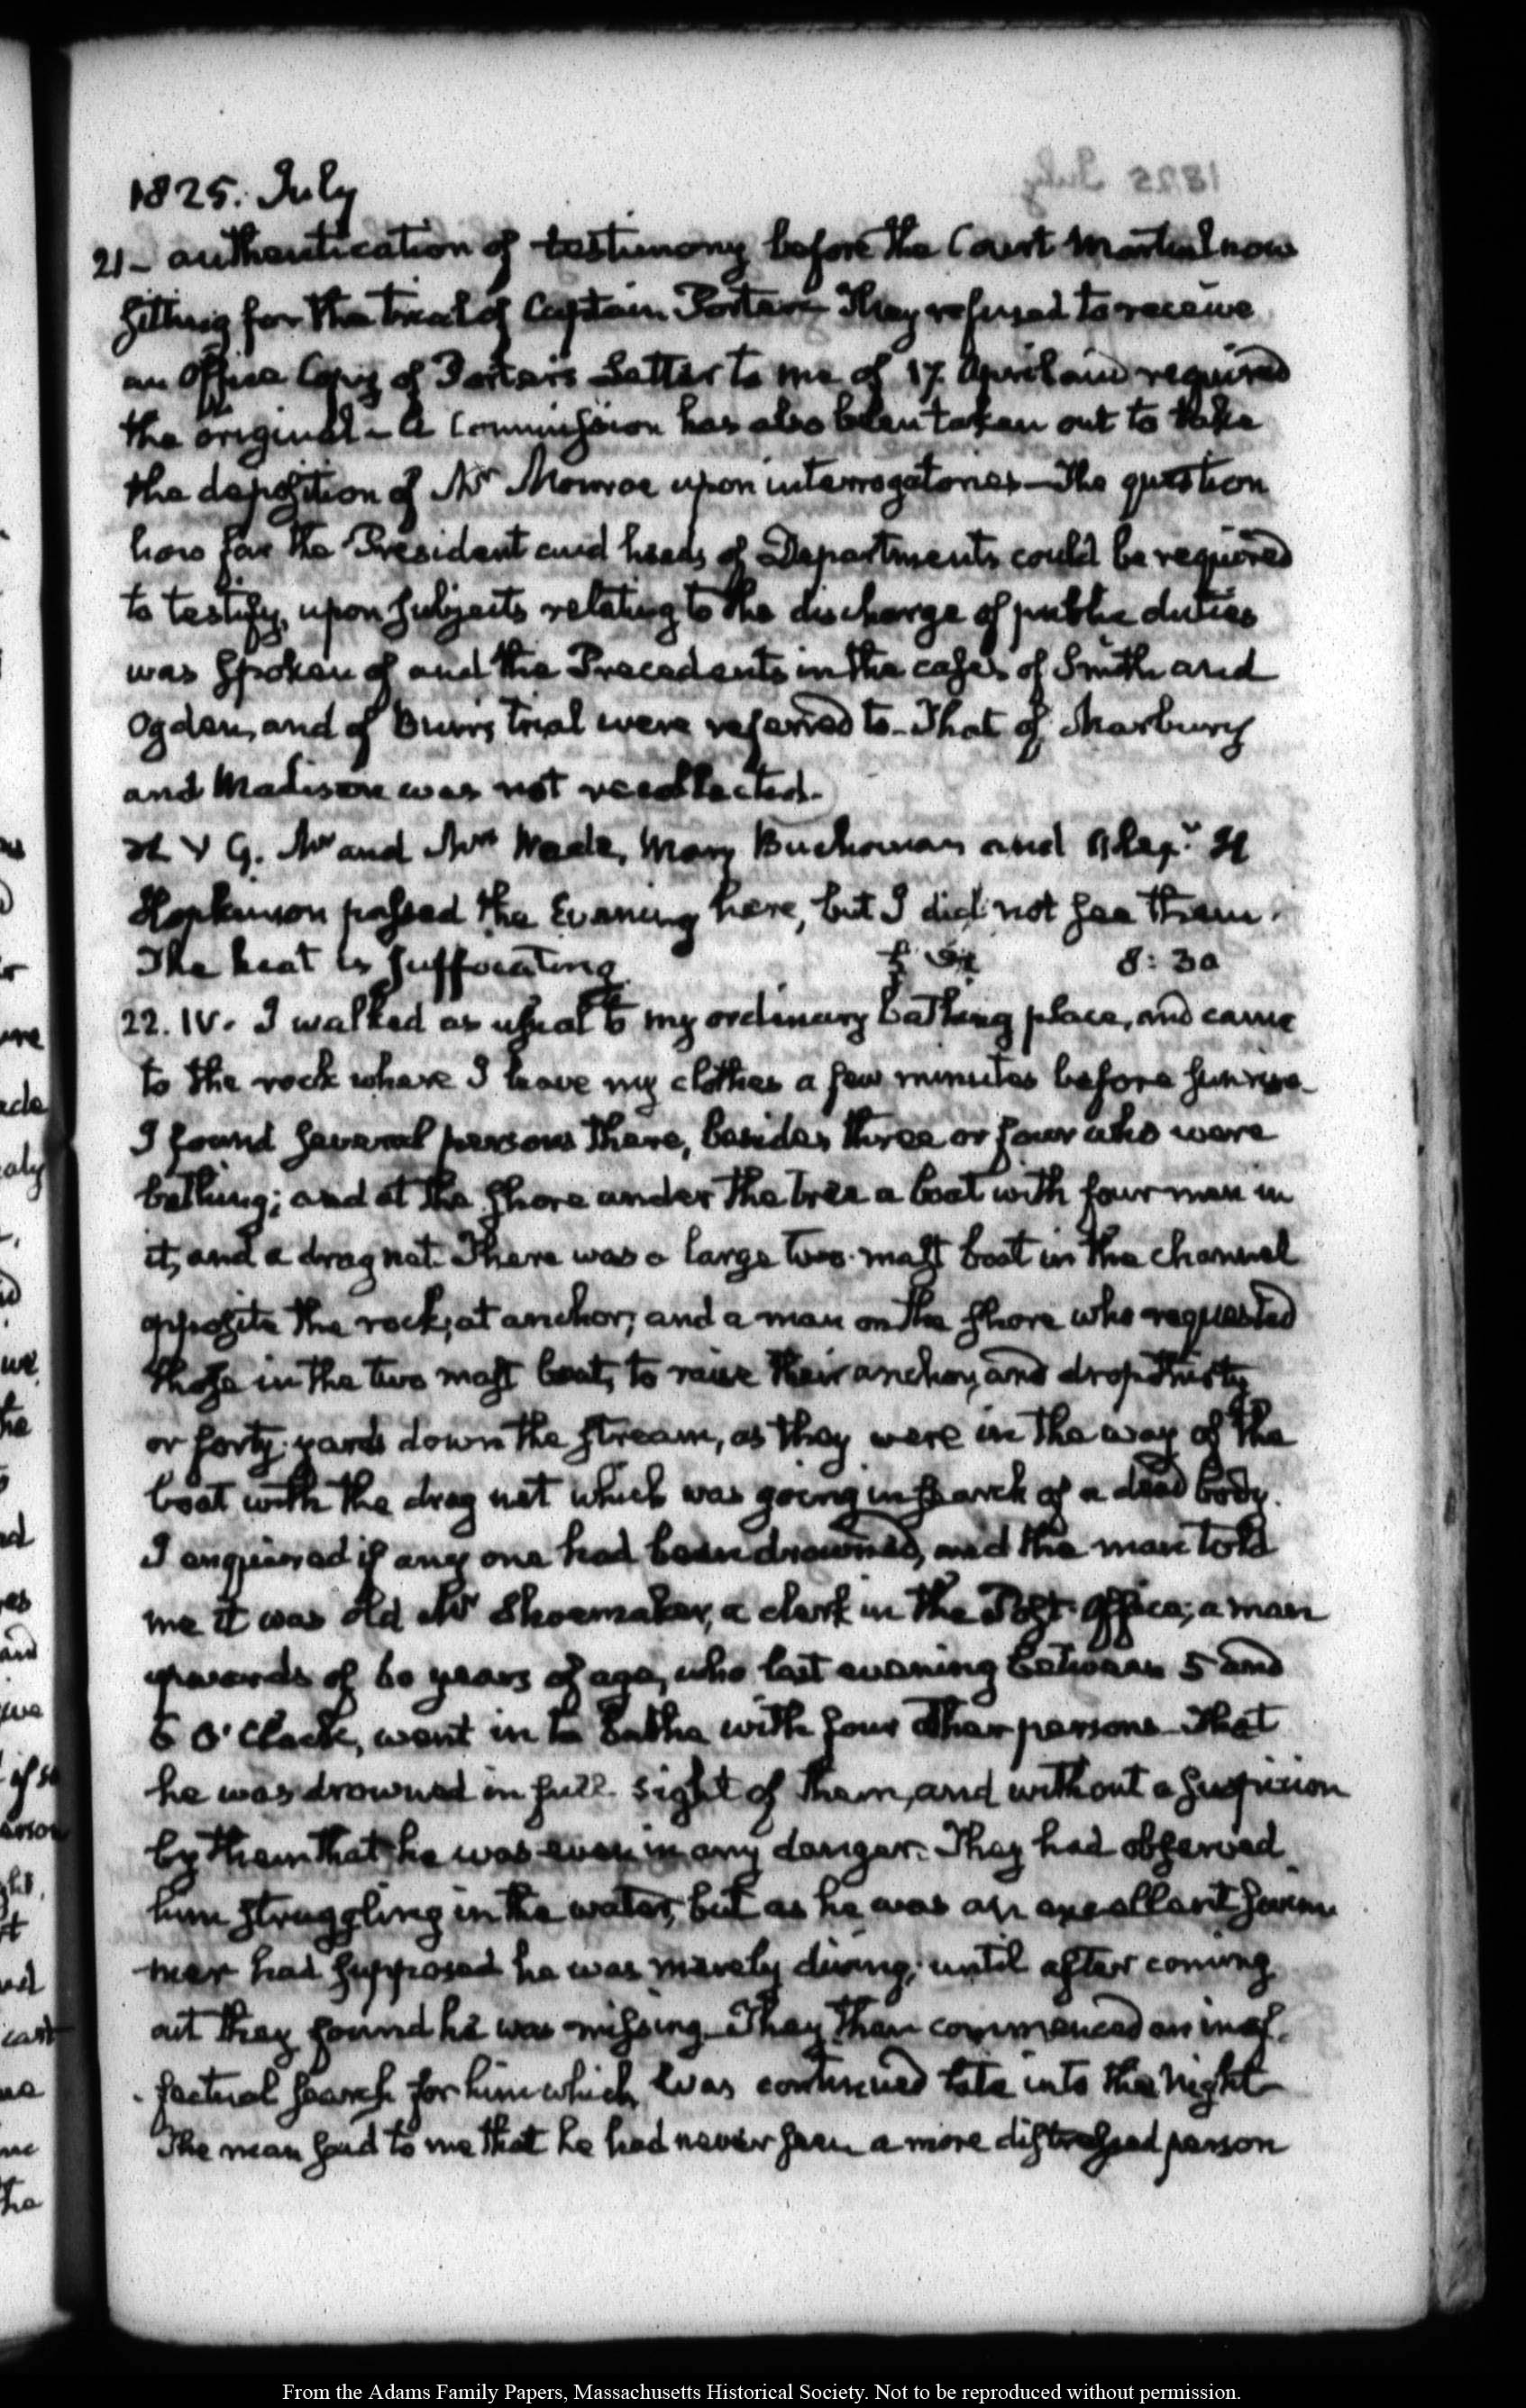 1825. July
21- authentication of testimony before the Court Martial now
sitting for the trial of Captain Porter - They refused to receive
an Office Copy of Porter's Letter to me of 17. April and required
the original - A Commission has also been taken out to take
the deposition of Mr Monroe upon interrogatories - The question
how far the President and heads of Departments could be required
to testify, upon subjects relating to the discharge of public duties
was spoken of and the Precedents in the cases of Smith and
Ogden, and of Burr's trial were referred to - That of Marbury
and Madison was not recollected.
Mr and Mrs Wade, Mary Buchanan and Alexr H
Hopkinson passed the Evening here, but I did not see them.
The heat is suffocating 8:30
22. IV. I walked as usual to my ordinary bathing place, and came
to the rock where I leave my clothes a few minutes before sunrise -
I found several persons there, besides three or four who were
bathing; and at the shore under the tree a boat with four men in
it, and a drag net. There was a large two-mast boat in the channel
opposite the rock, at anchor; and a man on the shore who requested
those in the two mast boat, to raise their anchor, and drop thirty
or forty yards down the stream, as they were in the way of the
boat with the drag net which was going in search of a dead body.
I enquired if any one had been drowned, and the man told
me it was old Mr Shoemaker, a clerk in the Post-Office; a man
upwards of 60 years of age, who last evening between 5 and
6 O'Clock, went in to bathe with four other persons - That
he was drowned in full sight of them, and without a suspicion
by them that he was even in any danger. They had observed
him struggling in the water, but as he was an excellent swim
mer had supposed he was merely diving, until after coming
out they found he was missing - They then commenced an inef-
-fectual search for him which was continued late into the Night -
The man said to me that he had never seen a more distressed person
From the Adams Family Papers, Massachusetts Historical Society. Not to be reproduced without permission.